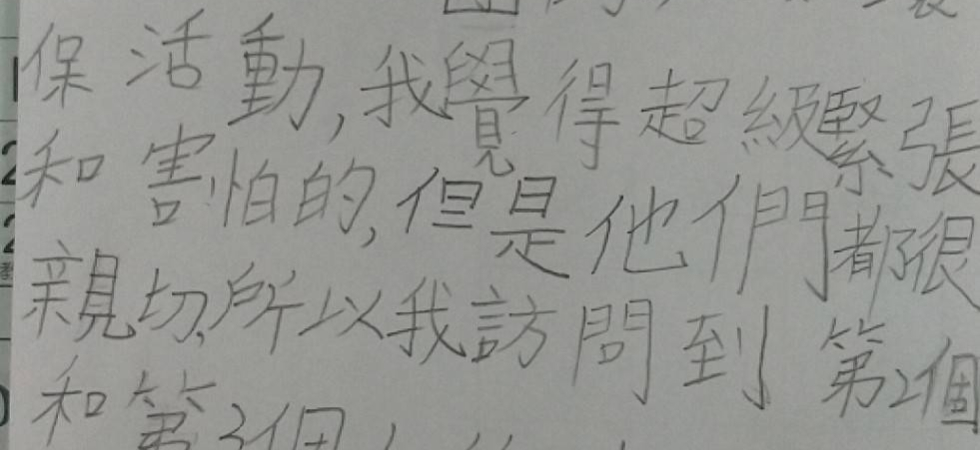 保活動,我覺得超級緊張
和害怕的,但是他們都很
親切,所以我訪問到第2個
和第3個